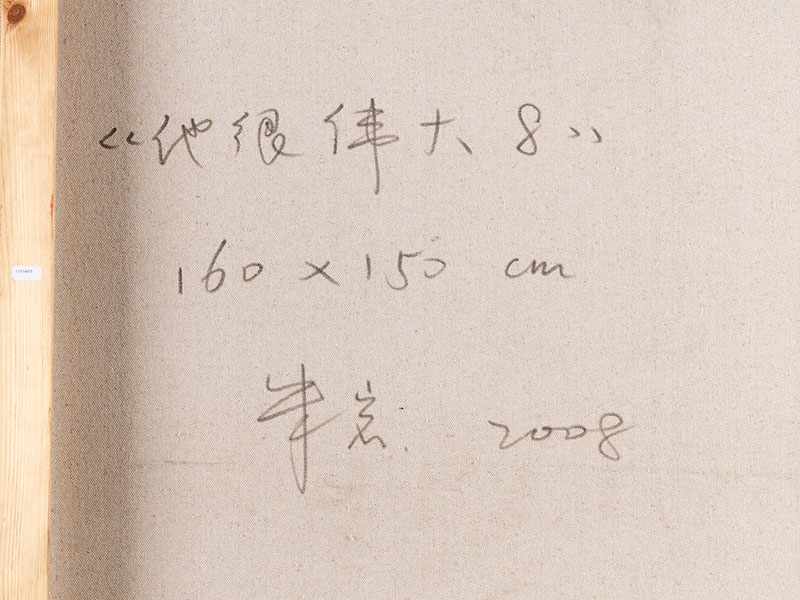 《他很伟大 8》
160 × 150 cm
2008